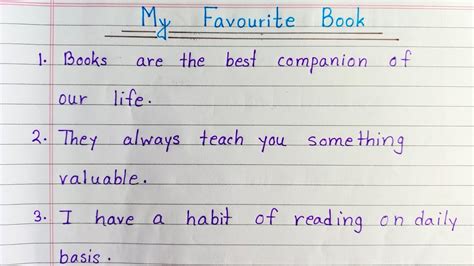 My Favourite Book
1. Books are the best companion of
our life.
2. They always teach you something
valuable.
3. I have a habit of reading on daily
basis.